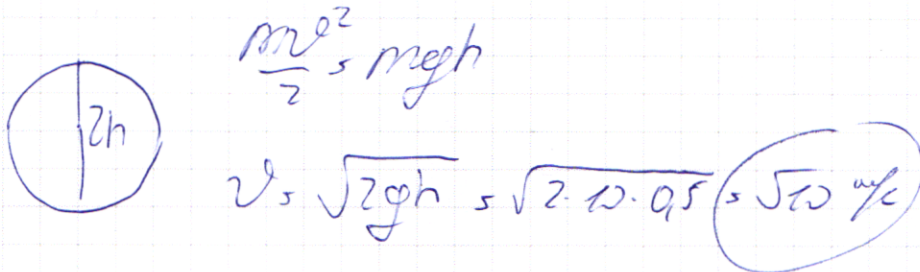 mv²/2 = mgh
2h
v = √2gh = √2·10·0,5 = √10 м/с